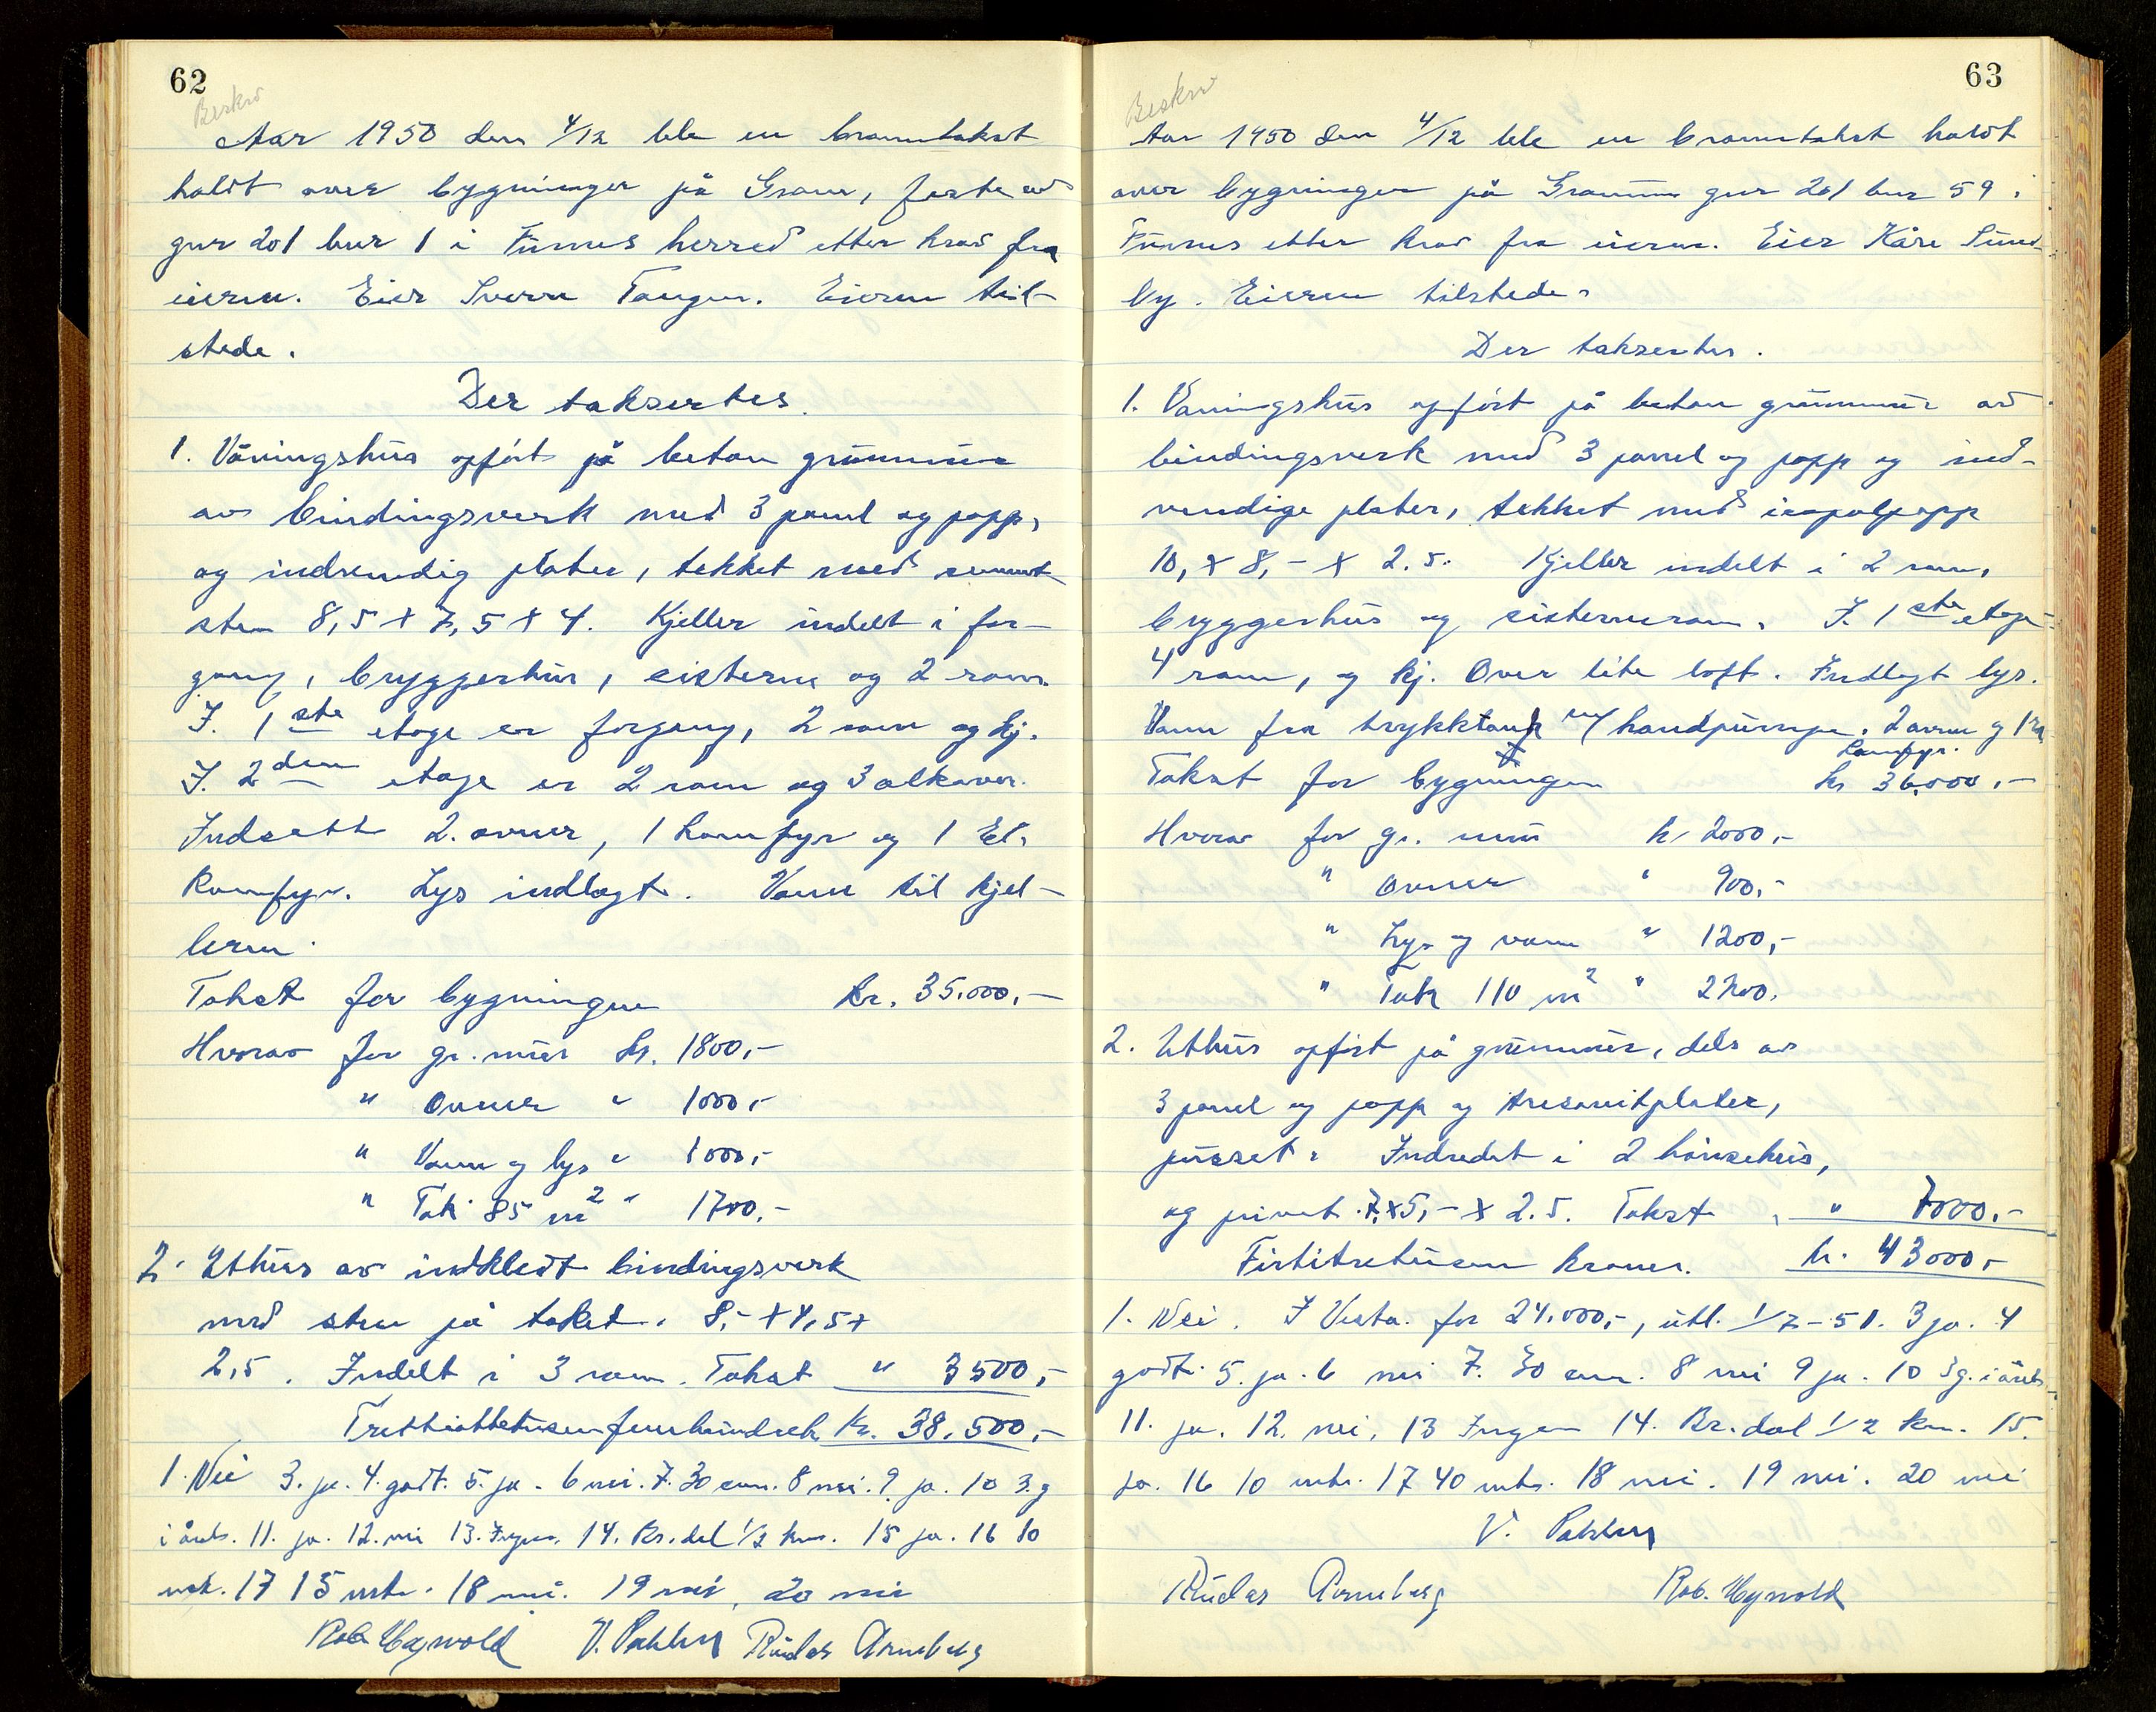 62
Beskrev
Aar 1950 den 4/12 ble en branntakst
holdt over bygninger på Gram, feste av
gnr 201 bnr 1 i Furnes herred etter krav fra
eieren. Eier Sverre Tangen. Eieren til-
stede.
Der taksertes.
1. Våningshus opført på betong grunnmur
av bindingsverk med 3 panel og papp,
og indvendig plater, tekket med sement-
sten 8,5 x 7,5 x 4. Kjeller indelt i for-
gang, bryggerhus, cisterne og 2 rom.
I. 1ste etage er forgang, 2 rom og kj.
I. 2den etage er 2 rom og 3 alkover.
Indsatt 2. ovner, 1 komfyr og 1 El.
Komfyr. Lys indlagt. Vann til kjel-
leren.
Takst for bygningen kr. 35.000,-
Hvorav for gr. mur kr. 1800,-
" Ovner " 1000,-
" Vann og lys " 1000,-
" Tak 85 m2 " 1700,-
2. Uthus av indkledt bindingsverk
med sten på taket. 8,- x 4,5 x
2,5. Indelt i 3 rom. Takst " 3500,-
Trettiåttetusenfemhundrede kr. 38.500,-
1. Nei 3. ja. 4. godt. 5. ja. 6 nei. 7. 30 cm. 8 nei. 9 ja. 10 3. g
i året. 11. ja. 12. nei 13. Ingen. 14. Br.dal 1/2 km. 15 ja. 16 10
mtr. 17 15 mtr. 18 nei. 19 nei, 20 nei
Rob. Hagwold V. Pahlm Ruder Arneberg
63
Beskrev
Aar 1950 den 4/12 ble en branntakst holdt
over bygninger på Gramm gnr 201 bnr 59 i
Furnes etter krav fra eieren. Eier Kåre Sund-
by. Eieren tilstede.
Der taksertes.
1. Vaningshus opført på betong grunnmur av
bindingsverk med 3 panel og papp og ind-
vendige plater, tekket med icopalpapp
10,- x 8,- x 2.5. Kjeller indelt i 2 rom,
bryggerhus og cisternerom. I. 1ste etage
4 rom, og kj. Over lite loft. Indlagt lys.
Vann fra trykktank m/ handpumpe. 2 ovner og 1
komfyr.
Takst for bygningen kr 36.000,-
Hvorav for gr. mur kr 2000,-
" Ovner " 900,-
" Lys og vann " 1200,-
" Tak 110 m2 " 2200,
2. Uthus opført på grunnmur, dels av
3 panel og papp og tresonitplater,
pusset. Indredet i 2 hönsehus,
og privet. 7,x5,- x 2.5. Takst " 7000,-
Førtitretusen kroner. kr. 43000,-
1. Nei. I Vesta. for 24.000,-, utl. 1/7-51. 3 ja. 4
godt. 5. ja. 6 nei 7. 30 cm. 8 nei 9 ja. 10 3 g. i året
11. ja. 12. nei, 13 Ingen 14. Br.dal 1/2 km. 15.
ja. 16 10 mtr. 17 40 mtr. 18 nei. 19 nei. 20 nei
V. Pahlm
Ruder Arneberg Rob. Hagwold